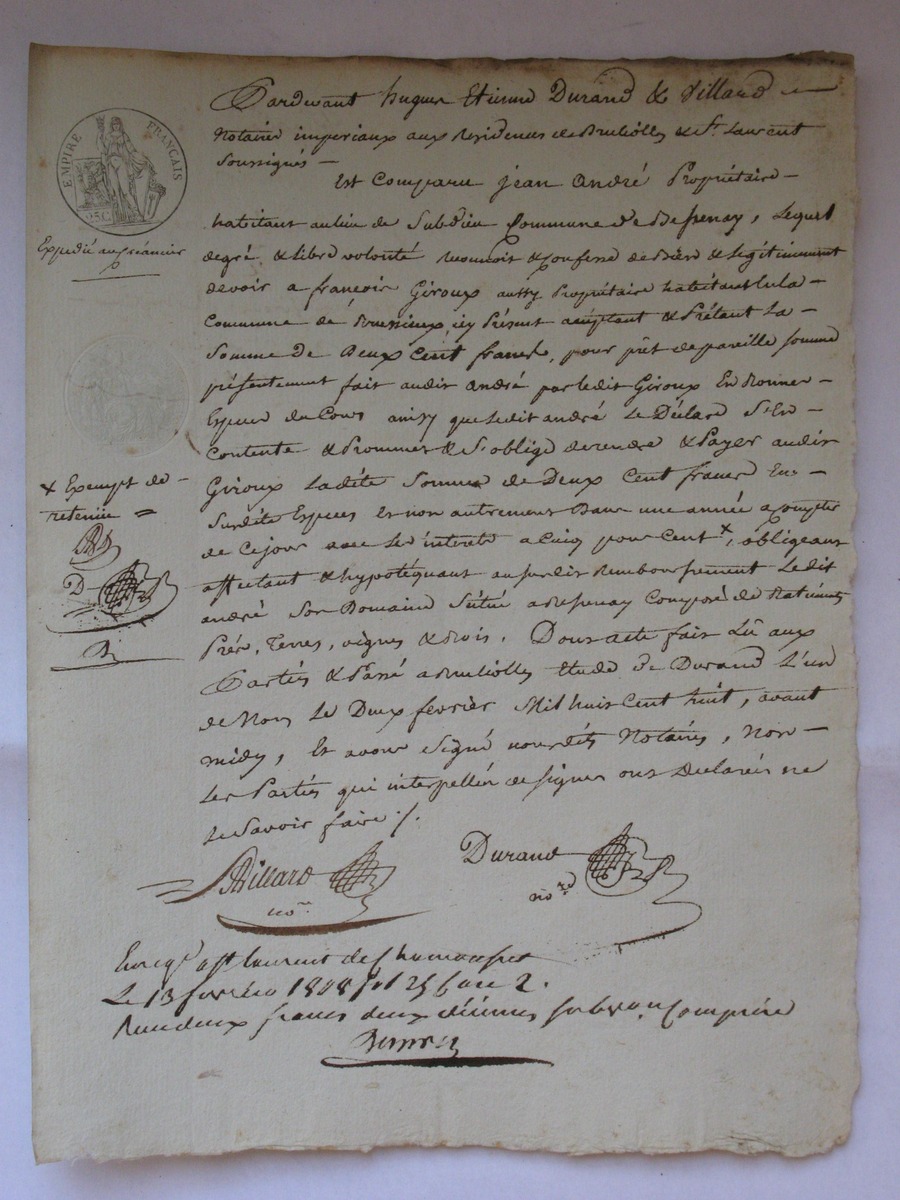 EMPIRE FRANÇAIS
25C
Pardevant hugues Etienne Durand & Villard
Notaires imperiaux aux Residences de Brullioles & St Laurent
Soussignés
Est Comparu jean andré Propriétaire
habitant au lieu de Commune de Bessenay, Lequel
de gré & libre volonté reconnoit & Confesse devoir & légitimement
devoir a françois Giroux aussy Propriétaire habitant en la
Commune de Brussieux, icy Présent acceptant & Prétant La
Somme de Deux Cent francs, pour prêt de pareille somme
présentement fait audit andré par ledit Giroux En bonnes
Especes du Cours ainsy que ledit andré Le Déclare S'En
Contente & Promet & S'oblige de rendre & Payer audit
Giroux Ladite Somme de Deux Cent francs En
Susdites Especes et non autrement Dans une année a Compter
de Ce jour avec les interets a Cinq pour Cent x, obligeant
affectant & hypotéquant au susdit Remboursement Le dit
andré Son Domaine Situé a Bessenay Composé de Batiments
Prés, Terres, vignes & Bois. Dont acte fait Lû aux
Parties & Passé a Brullioles Etude de Durand L'un
de Nous Le Deux février Mil huit Cent huit, avant
midy, Et avons Signé nousdits Notaires, Non
Les Parties qui interpellées de signer ont Declarées ne
Le Savoir faire ./.
Expedié au Créancier
x Exempt de
retenüe =
D
Villard
no.re
Durand
no.re
Enreg. a St laurent de Chamousset
Le 13 fevrier 1808 fol 25 Case 2.
Reçu deux francs deux décimes subvon. Comprise